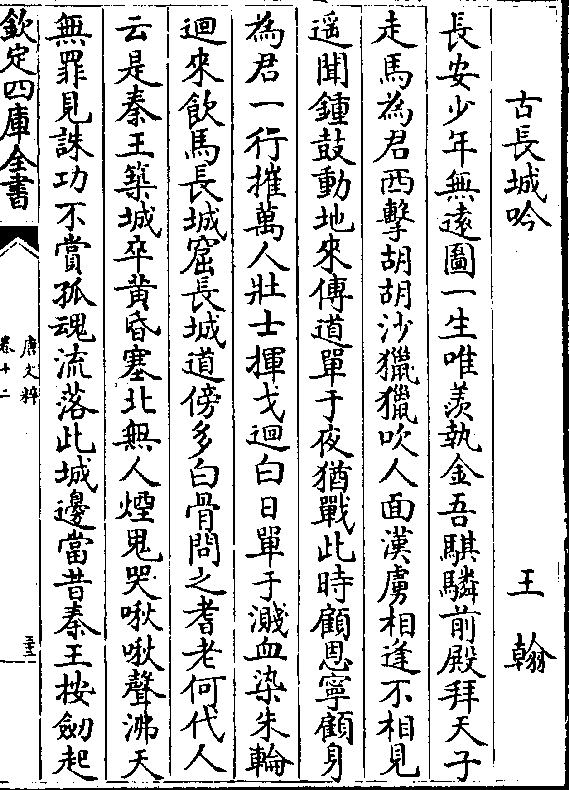 古長城吟　王翰
長安少年無遠圖一生唯羨執金吾騏驎前殿拜天子
走馬為君西擊胡胡沙獵獵吹人面漢虜相逢不相見
遥聞鍾鼓動地來傳道單于夜猶戰此時顧恩寧顧身
為君一行摧萬人壯士揮戈迴白日單于濺血染朱輪
迴來飲馬長城窟長城道傍多白骨問之耆老何代人
云是秦王築城卒黄昏塞北無人煙鬼哭啾啾聲沸天
無罪見誅功不賞孤魂流落此城邊當昔秦王按劒起
欽定四庫全書
唐文粹
卷十二